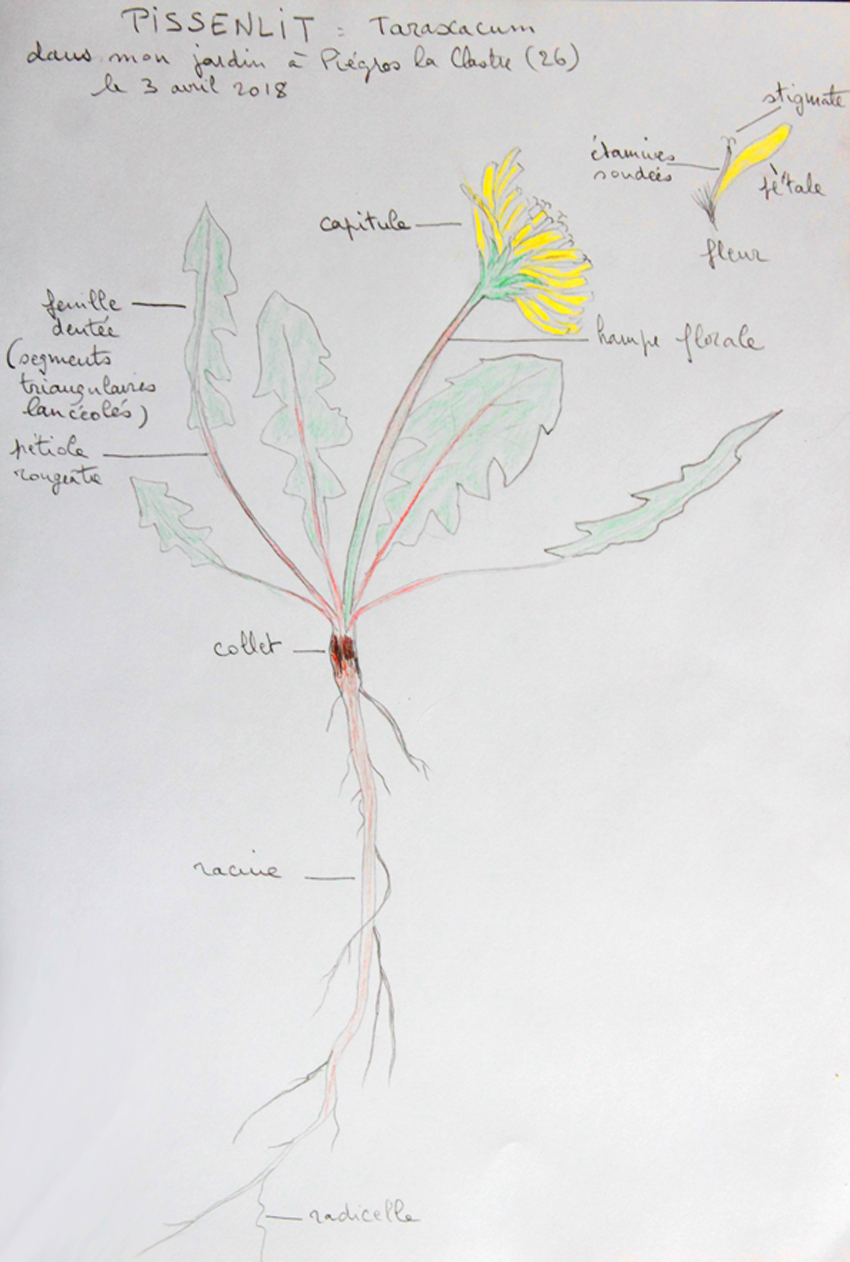 PISSENLIT = Taraxacum
dans mon jardin à Piégros la Clastre (26)
le 3 avril 2018
stigmate
étamines
soudées
pétale
fleur
capitule
hampe florale
feuille
dentée
(segments
triangulaires
lancéolés)
pétiole
rougeatre
collet
racine
radicelle